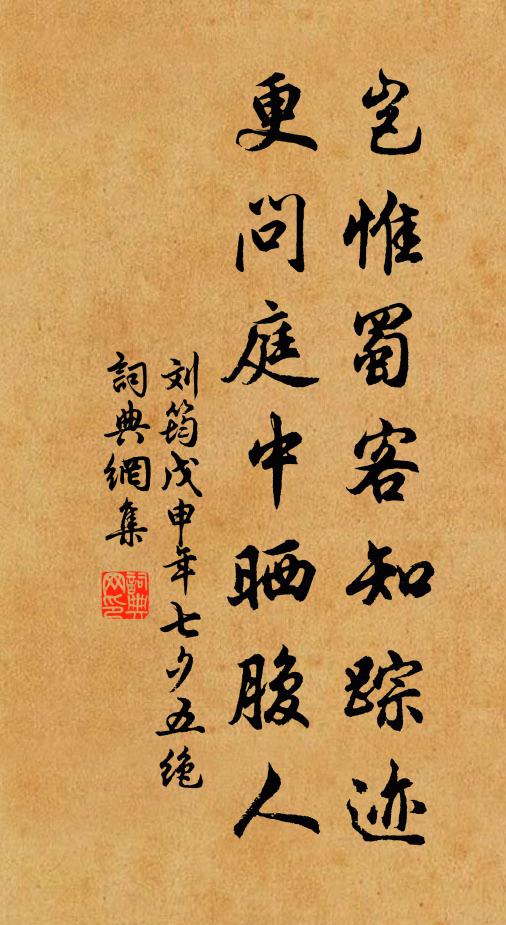 岂惟蜀客知踪迹
更问庭中晒腹人
刘筠戊申年七夕五绝
詞典網集
詞典网印